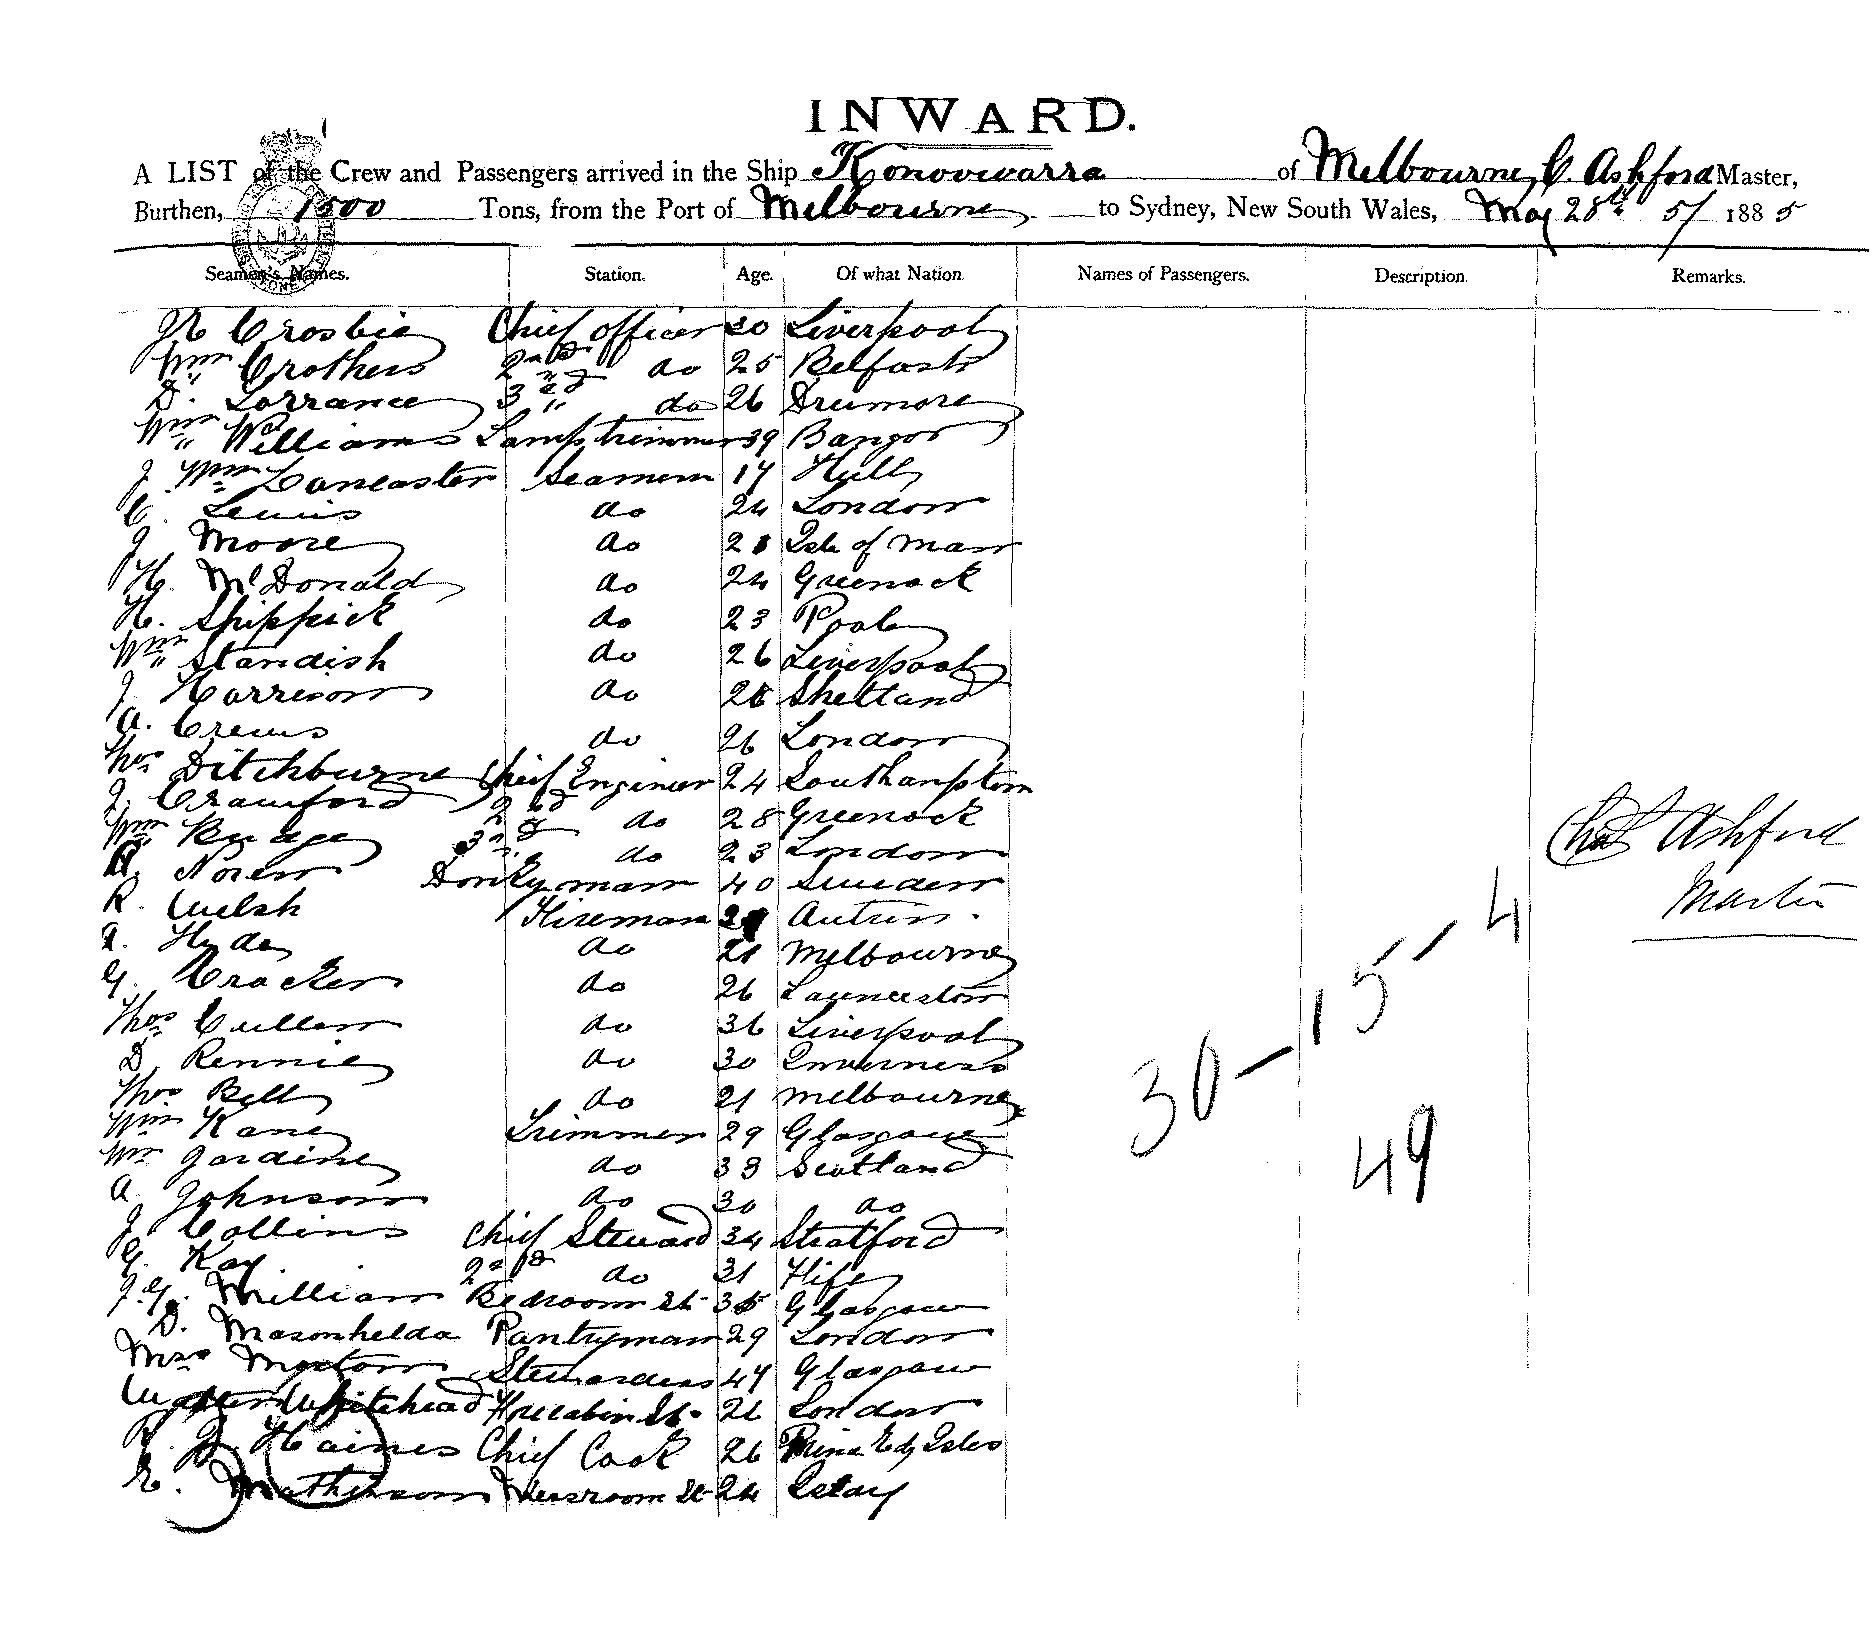 INWARD.
A LIST of the Crew and Passengers arrived in the Ship Konoowarra of Melbourne, C. Ashford Master,
Burthen, 1500 Tons, from the Port of Melbourne to Sydney, New South Wales, May 28th 5/ 1885
Seamen's Names. Station. Age. Of what Nation. Names of Passengers. Description. Remarks.
Crosbie Chief officer 30 Liverpool
Wm Crothers 2nd do 25 Belfast
D. Lorrance 3rd do 26 Drumore
Wm Williams Lamptrimmer 39 Bangor
J. Wm Lancaster Seamen 17 Hull
C. Lewis do 24 London
J Moore do 21 Isle of Man
H. McDonald do 24 Greenock
H. Shippick do 23 Poole
Wm Standish do 26 Liverpool
J. Harrison do Shetland
A. Crews do 26 London
Thos Ditchburne Chief Engineer 24 Southampton
J. Crawford 2nd do 28 Greenock
Wm Budge 3rd do 23 London
A. Noren Donkeyman 40 Sweden
R. Welsh Fireman
Hyde do 21 Melbourne
G. Cracker do 26 Launceston
Thos Cullen do 36 Liverpool
D Rennie do 30 Inverness
Thos Bell do 21 Melbourne
Wm Kane Trimmer 29 Glasgow
Wm Jardine do 33 Scotland
A. Johnson do 30 do
J Collins Chief Steward 34 Stratford
G. Kay 2nd do 31 Fife
J.G. Millian Bedroom St 35 Glasgow
D. Masonhelda Pantryman 29 London
Mrs Morton Stewardess 47 Glasgow
Walter Whitehead Forecabin St. 26 London
Haines Chief Cook 26 Prince Ed Isles
E. Mathieson Messroom St 24 Islay
Chas Ashford
Master
30 - 15 - 4
49